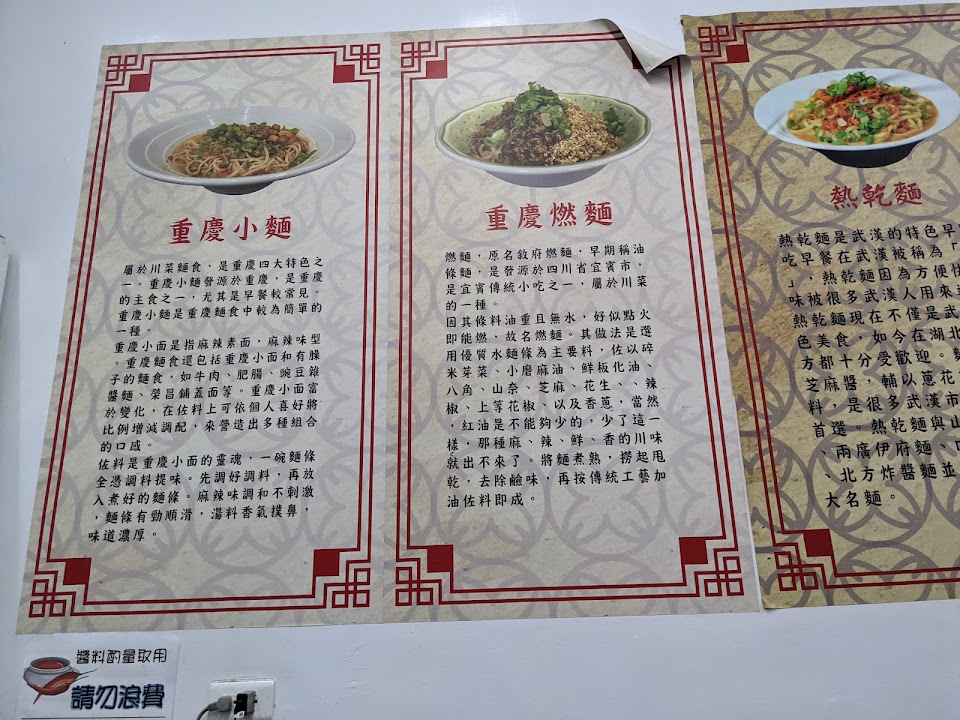 重慶小麵
屬於川菜麵食，是重慶四大特色之
一。重慶小麵發源於重慶，是重慶
的主食之一，尤其是早餐較常見。
重慶小麵是重慶麵食中較為簡單的
一種。
重慶小面是指麻辣素面，麻辣味型
。重慶麵食還包括重慶小面和有臊
子的麵食，如牛肉、肥腸、豌豆雜
醬麵、榮昌鋪蓋面等。重慶小面富
於變化，在佐料上可依個人喜好將
比例增減調配，來營造出多種組合
的口感。
佐料是重慶小面的靈魂，一碗麵條
全憑調料提味。先調好調料，再放
入煮好的麵條。麻辣味調和不刺激
，麵條有勁順滑，湯料香氣撲鼻，
味道濃厚。
重慶燃麵
燃麵，原名敘府燃麵，早期稱油
條麵，是發源於四川省宜賓市，
是宜賓傳統小吃之一，屬於川菜
的一種。
因其條料油重且無水，好似點火
即能燃，故名燃麵。其做法是選
用優質水麵條為主要料，佐以碎
米芽菜、小磨麻油、鮮板化油、
八角、山奈、芝麻、花生、、辣
椒、上等花椒、以及香蔥，當然
，紅油是不能夠少的，少了這一
樣，那種麻、辣、鮮、香的川味
就出不來了。將麵煮熟，撈起甩
乾，去除鹼味，再按傳統工藝加
油佐料即成。
熱乾麵
熱乾麵是武漢的特色早
吃早餐在武漢被稱為「
」，熱乾麵因為方便快
味被很多武漢人用來
熱乾麵現在不僅是武
色美食，如今在湖北
方都十分受歡迎。麵
芝麻醬，輔以蔥花
料，是很多武漢市
首選。熱乾麵與山
、兩廣伊府麵、
、北方炸醬麵並
大名麵。
醬料酌量取用
請勿浪費